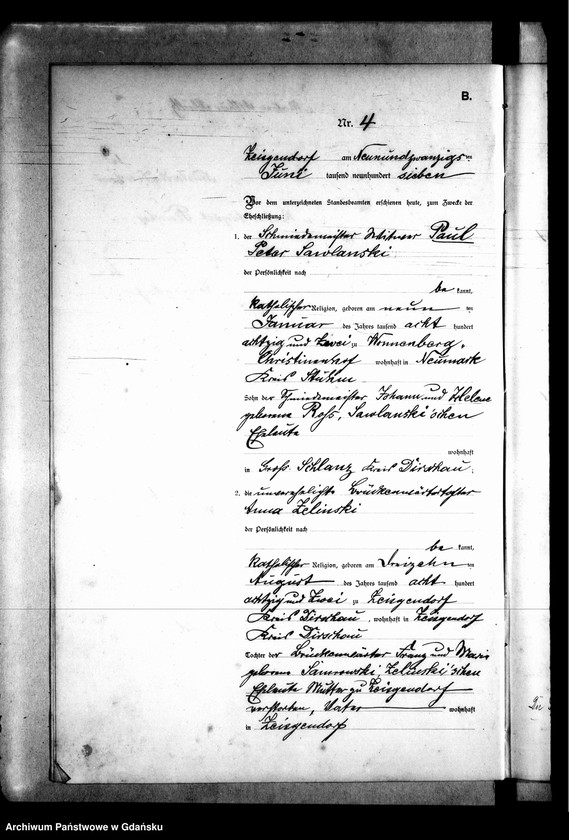 B.
Nr. 4
Zeisgendorf am Neunundzwanzigsten
Juni tausend neunhundert sieben
Vor dem unterzeichneten Standesbeamten erschienen heute, zum Zwecke der
Eheschließung:
1. der Schmiedemeister Witwer Paul
Peter Sawlanski
der Persönlichkeit nach
be kannt,
katholischer Religion, geboren am neunten
Januar des Jahres tausend acht hundert
achtzig und zwei zu Wonnenberg,
Christinenhof wohnhaft in Neumark
Kreis Stuhm
Sohn der Schmiedemeister Johann und Helene
geborene Roß, Sawlanski'schen
Eheleute
wohnhaft
in Groß Schlanz Kreis Dirschau.
2. die unverehelichte Brückenwärtertochter
Anna Zelinski
der Persönlichkeit nach
be kannt,
katholischer Religion, geboren am Dreizehnten
August des Jahres tausend acht hundert
achtzig und zwei zu Zeisgendorf
Kreis Dirschau, wohnhaft in Zeisgendorf
Kreis Dirschau
Tochter der Brückenwärter Franz und Marie
geborene Zelinski'schen
Eheleute Mutter zu Zeisgendorf
verstorben, Vater wohnhaft
in Zeisgendorf
Archiwum Państwowe w Gdańsku